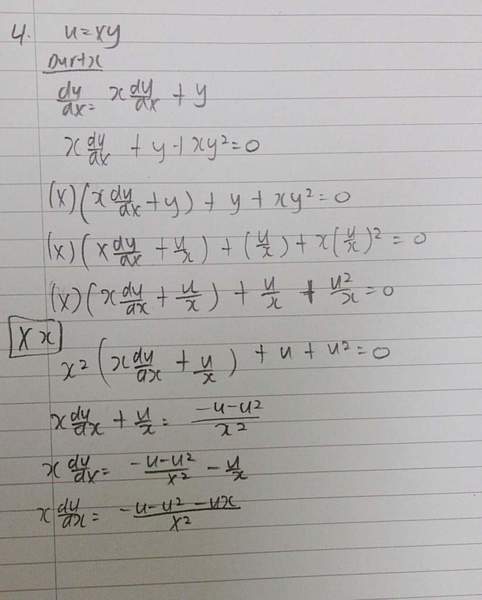 4. u=xy
Dwrtx
dy/dx = x dy/dx + y
x dy/dx + y + xy²=0
(x)(x dy/dx + y) + y + xy²=0
(x)(x dy/dx + u/x) + (u/x) + x(u/x)² = 0
(x)(x dy/dx + u/x) + u/x + u²/x = 0
X x
x²(x dy/dx + u/x) + u + u² = 0
x dy/dx + u/x = -u-u²/x²
x dy/dx = -u-u²/x² - u/x
x dy/dx = -u-u²-ux/x²